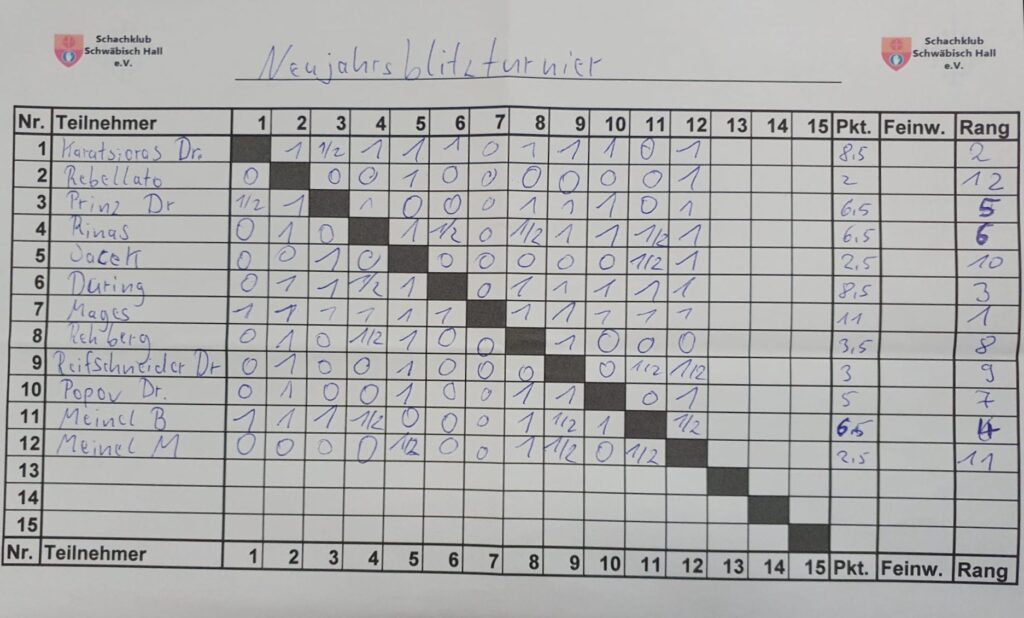 Schachklub
Schwäbisch Hall
e.V.
Neujahrsblitzturnier
Schachklub
Schwäbisch Hall
e.V.
Nr. Teilnehmer 1 2 3 4 5 6 7 8 9 10 11 12 13 14 15 Pkt. Feinw. Rang
1 Karatsioras Dr. 1 1/2 1 1 1 0 1 1 1 0 1 8,5 2
2 Rebellato 0 0 0 1 0 0 0 0 0 0 1 2 12
3 Prinz Dr 1/2 1 1 0 0 0 1 1 1 0 1 6,5 5
4 Rinas 0 1 0 1 1/2 0 1/2 1 1 1/2 1 6,5 6
5 Jacek 0 0 1 0 0 0 0 0 0 1/2 1 2,5 10
6 Düring 0 1 1 1/2 1 0 1 1 1 1 1 8,5 3
7 Mages 1 1 1 1 1 1 1 1 1 1 1 11 1
8 Rehberg 0 1 0 1/2 1 0 0 1 0 0 0 3,5 8
9 Reifschneider Dr 0 1 0 0 1 0 0 0 0 1/2 1/2 3 9
10 Popov Dr. 0 1 0 0 1 0 0 1 1 0 1 5 7
11 Meinel B 1 1 1 1/2 0 0 0 1 1/2 1 1/2 6,5 4
12 Meinel M 0 0 0 0 1/2 0 0 1 1/2 0 1/2 2,5 11
13
14
15
Nr. Teilnehmer 1 2 3 4 5 6 7 8 9 10 11 12 13 14 15 Pkt. Feinw. Rang